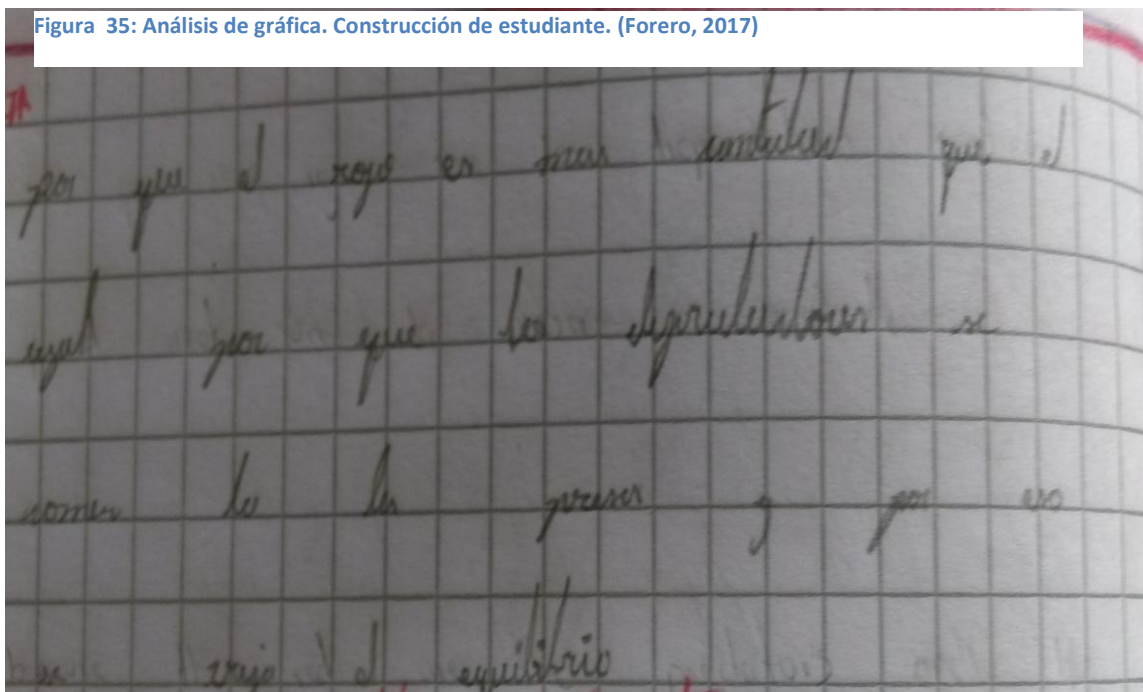 Figura 35: Análisis de gráfica. Construcción de estudiante. (Forero, 2017)
por que el rojo es mas cantidad que el
azul por que los depredadores se
comen la presas y por eso
el equilibrio